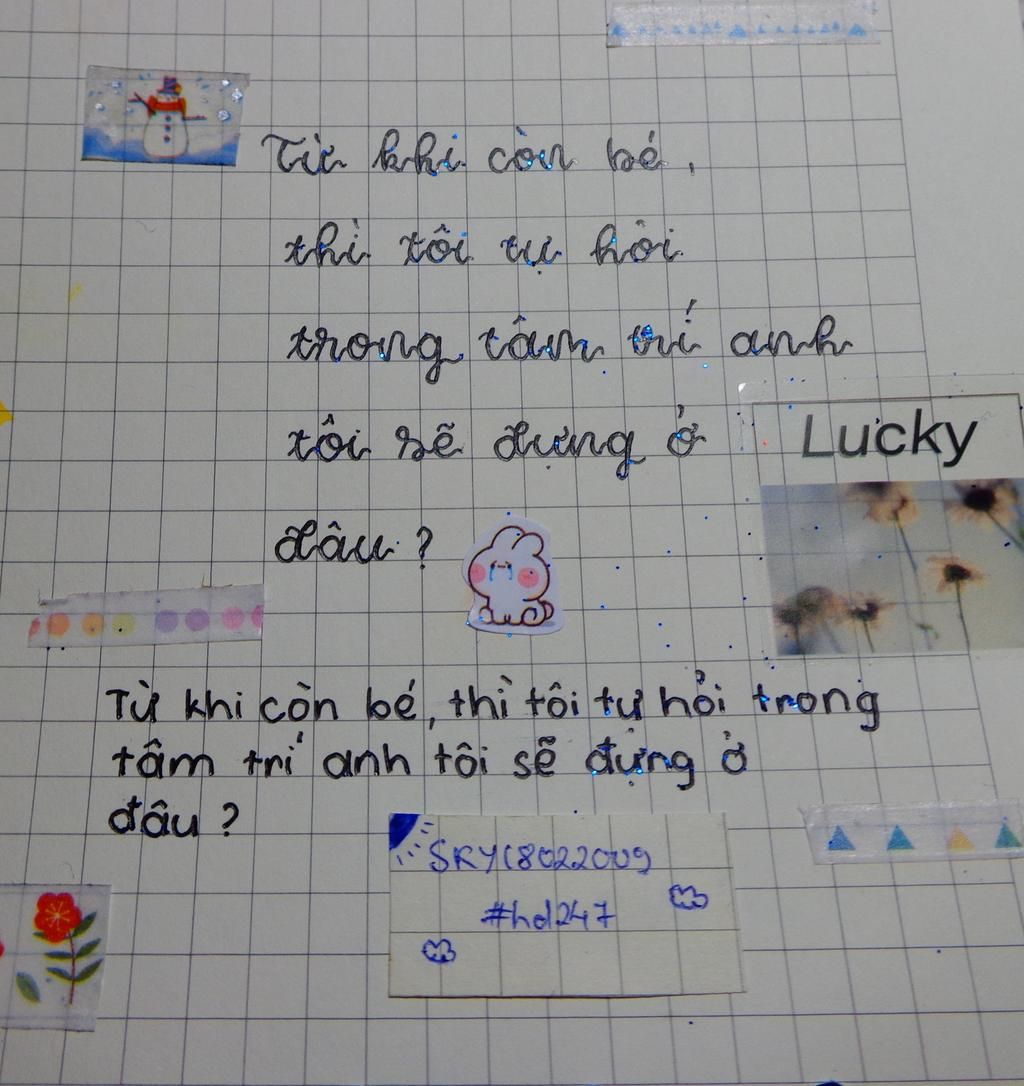 Từ khi còn bé,
thì tôi tự hỏi
trong tâm trí anh
tôi sẽ đựng ở
đâu?
Lucky
Từ khi còn bé, thì tôi tự hỏi trong
tâm trí anh tôi sẽ đựng ở
đâu?
SKY(8022009)
#hd247